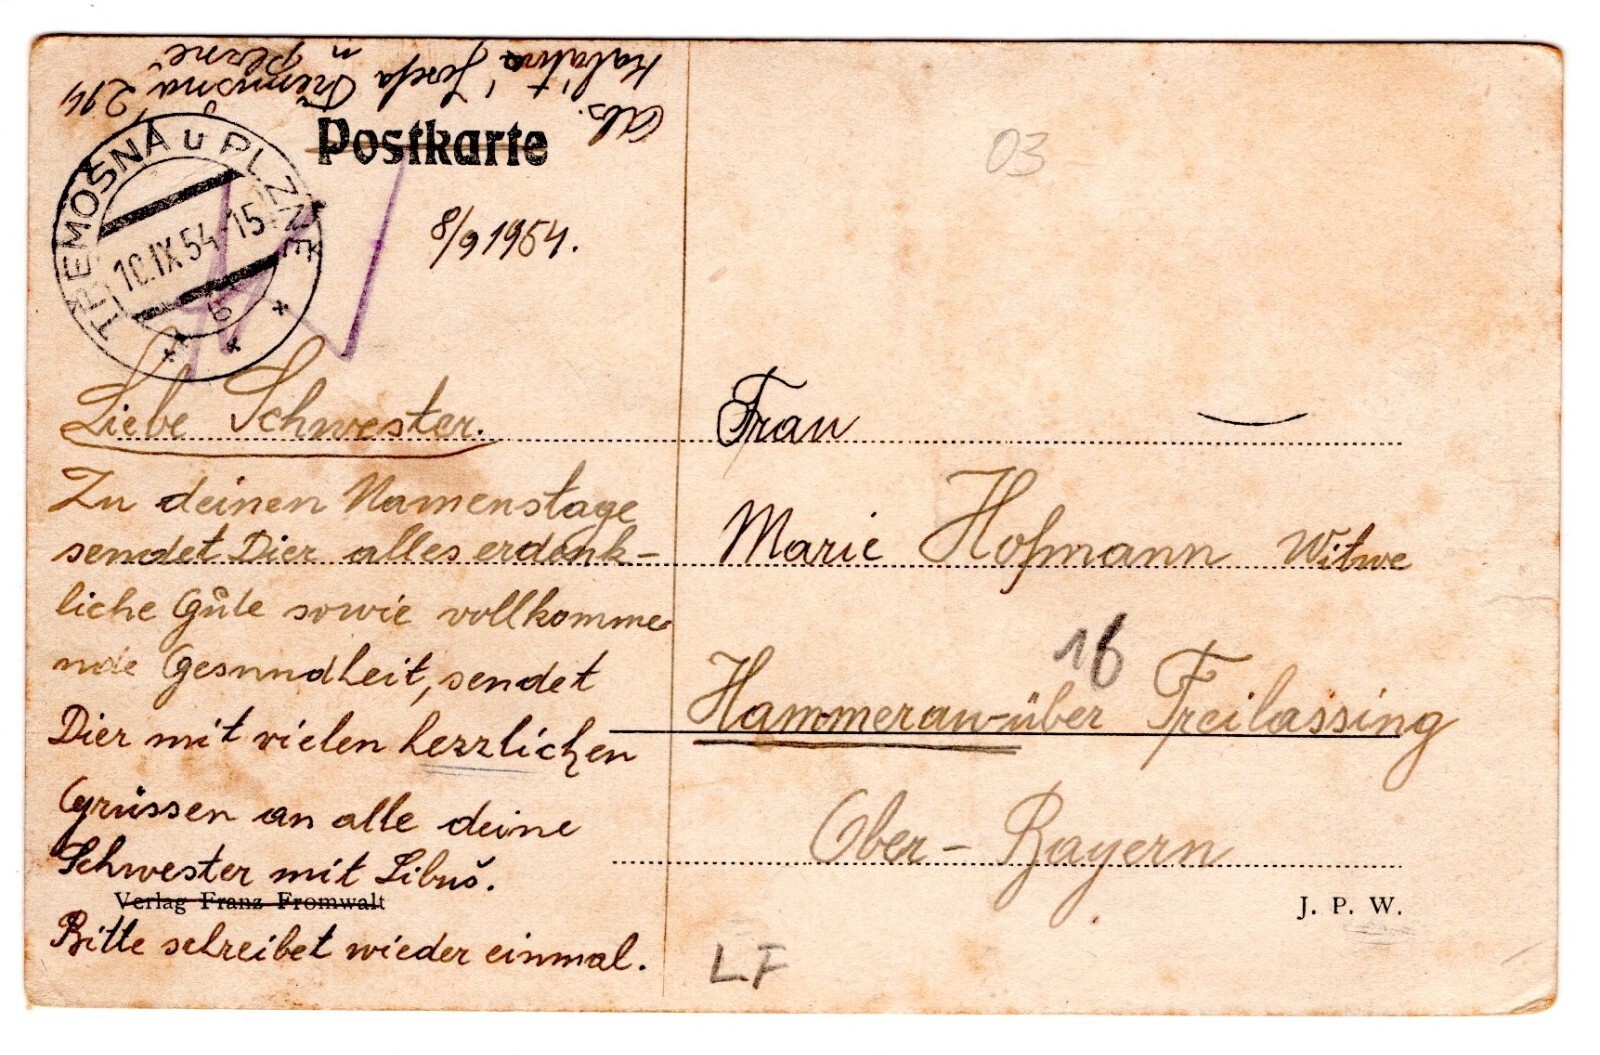 Abs.
Josefa Třemošná 294
u Plzně
Postkarte
TŘEMOŠNÁ u PLZNĚ
10.IX.54-15
b
8/9 1954.
03
Liebe Schwester.
Zu deinen Namenstage
sendet Dier alles erdenk-
liche Gute sowie vollkomme
nde Gesundheit, sendet
Dier mit vielen herzlichen
Grüssen an alle deine
Schwester mit Libuš.
Verlag Franz Fromwalt
Bitte schreibet wieder einmal.
Frau
Marie Hofmann Witwe
16
Hammerau-über Freilassing
Ober-Bayern
J. P. W.
LF